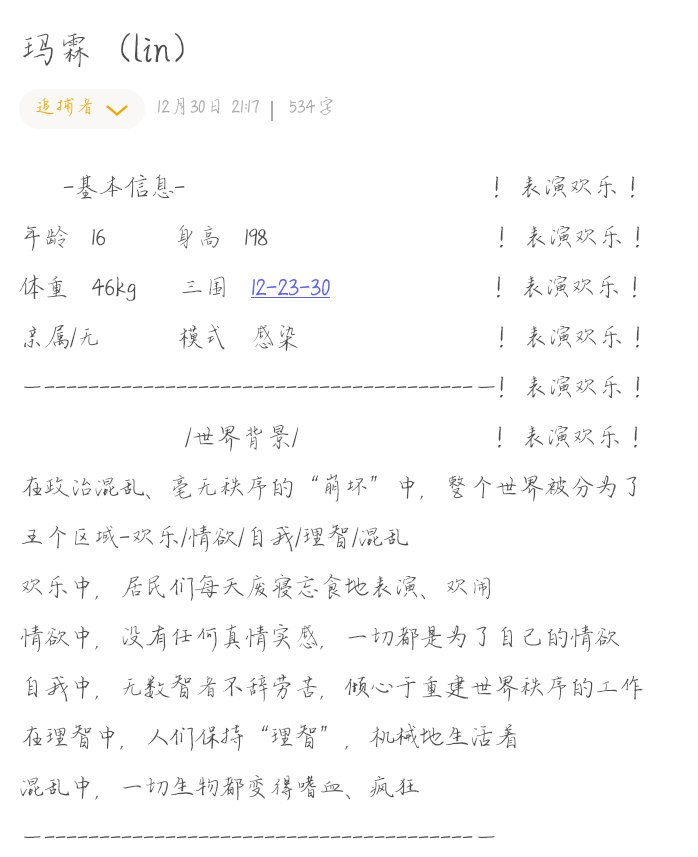 玛霖 （lin）
追捕者 12月30日 21:17 | 534字
-基本信息- ！表演欢乐！
年龄 16 身高 198 ！表演欢乐！
体重 46kg 三围 12-23-30 ！表演欢乐！
亲属/无 模式 感染 ！表演欢乐！
—---------------------------------------—！表演欢乐！
/世界背景/ ！表演欢乐！
在政治混乱、毫无秩序的“崩坏”中，整个世界被分为了
五个区域-欢乐/情欲/自我/理智/混乱
欢乐中，居民们每天废寝忘食地表演、欢闹
情欲中，没有任何真情实感，一切都是为了自己的情欲
自我中，无数智者不辞劳苦，倾心于重建世界秩序的工作
在理智中，人们保持“理智”，机械地生活着
混乱中，一切生物都变得嗜血、疯狂
—---------------------------------------—